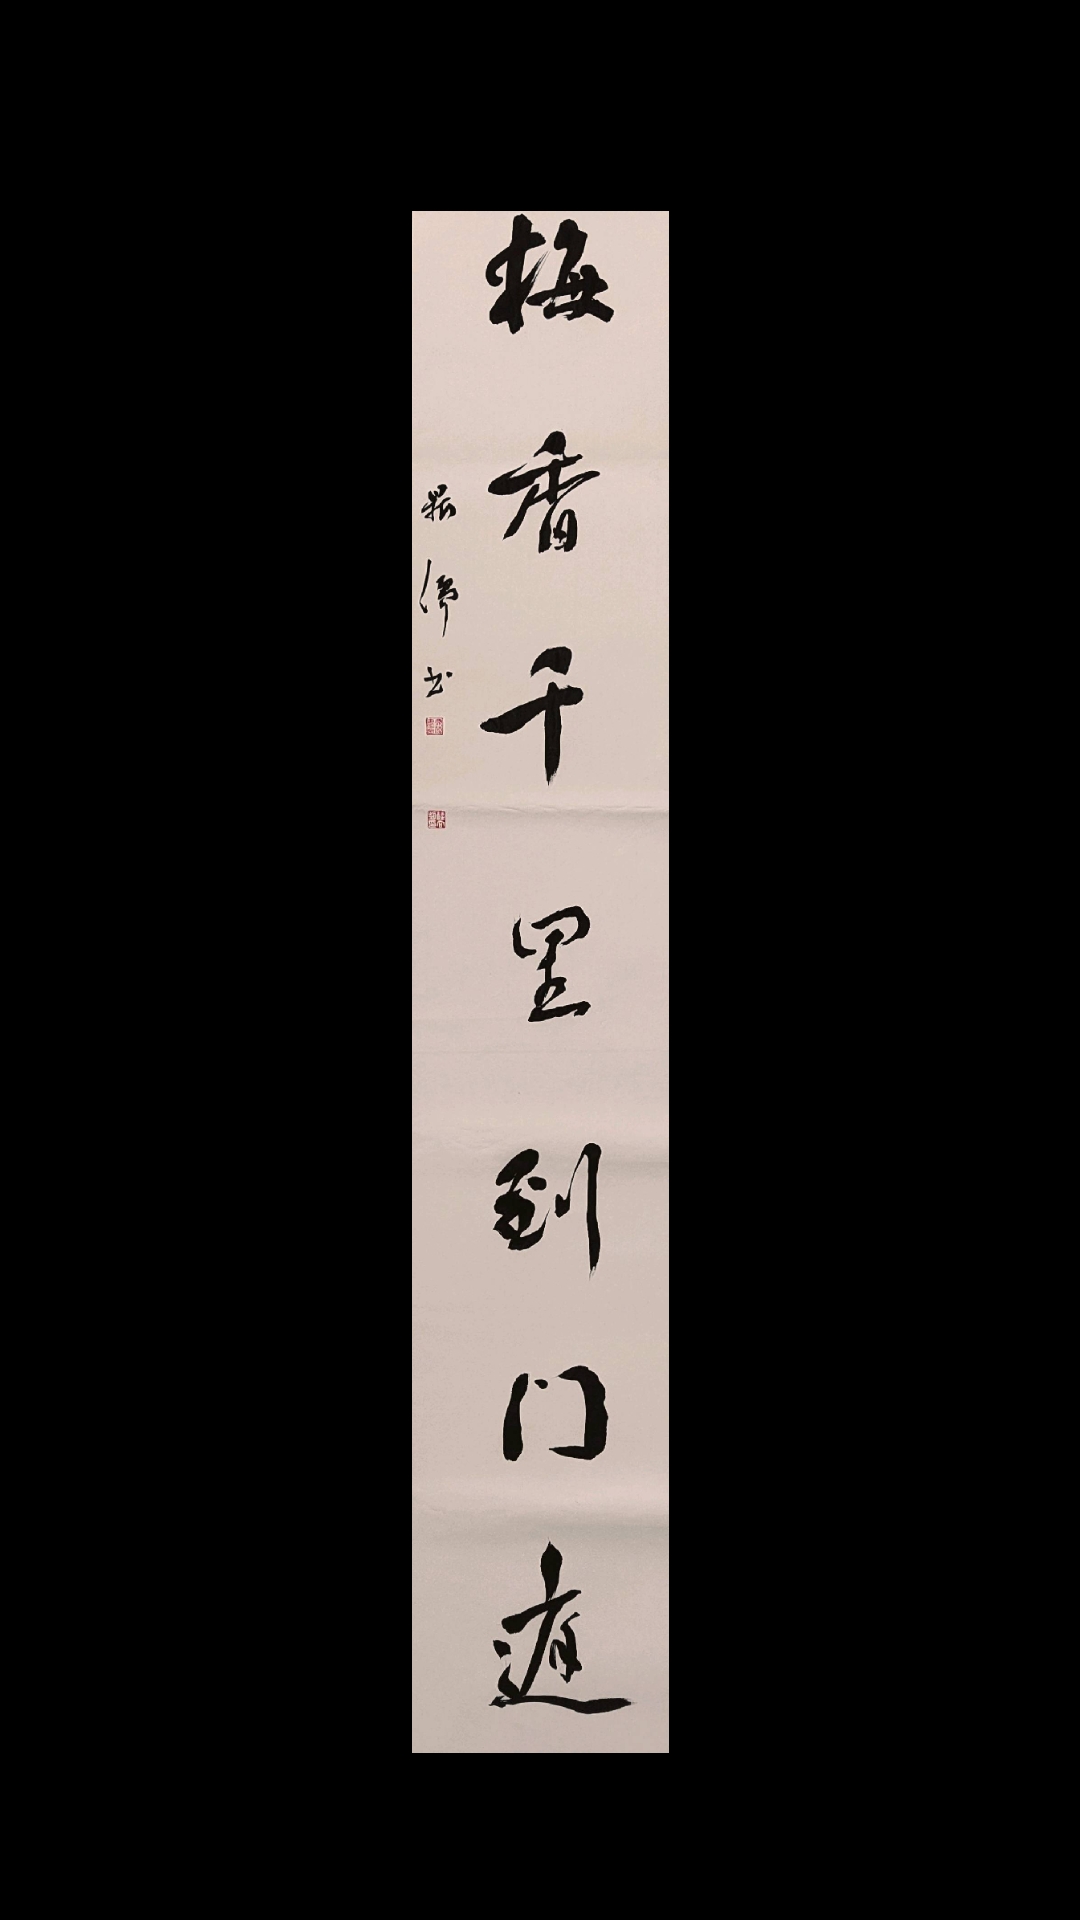 梅香千里到门庭
书